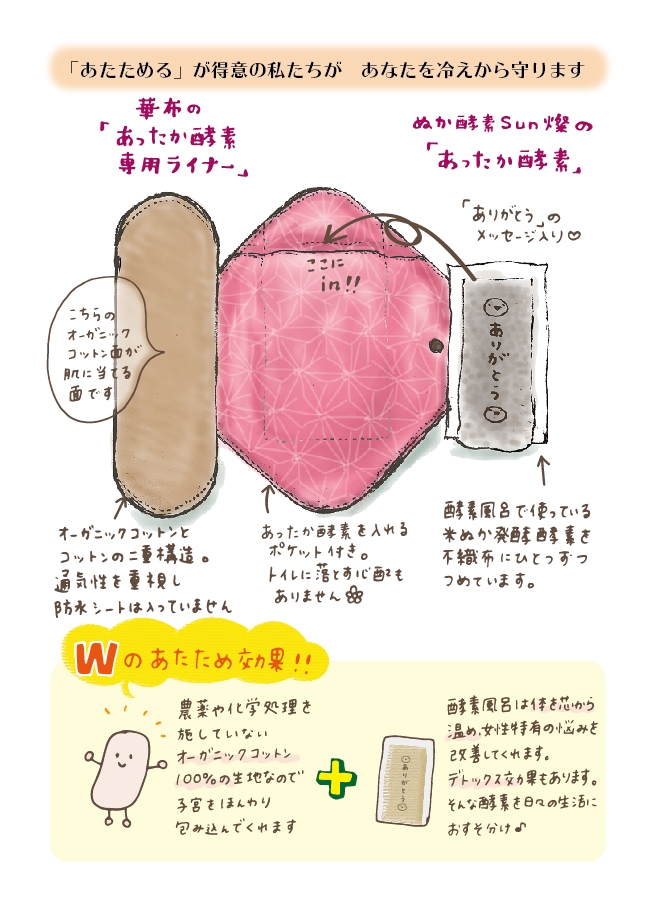 「あたためる」が得意の私たちが　あなたを冷えから守ります
華布の
「あったか酵素
専用ライナー」
ぬか酵素Sun燦の
「あったか酵素」
「ありがとう」の
メッセージ入り♡
ここに
in!!
ありがとう
こちらの
オーガニック
コットン面が
肌に当てる
面です
オーガニックコットンと
コットンの二重構造。
通気性を重視し
防水シートは入っていません
あったか酵素を入れる
ポケット付き。
トイレに落とす心配も
ありません
酵素風呂で使っている
米ぬか発酵酵素を
不織布にひとつずつ
つめています。
Wのあたため効果!!
農薬や化学処理を
施していない
オーガニックコットン
100%の生地なので
子宮をほんわり
包み込んでくれます
ありがとう
酵素風呂は体を芯から
温め、女性特有の悩みを
改善してくれます。
デトックス効果もあります。
そんな酵素を日々の生活に
おすそ分け♪